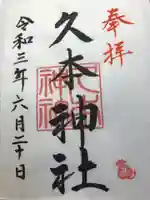 奉拝
久本神社
令和三年六月二十日